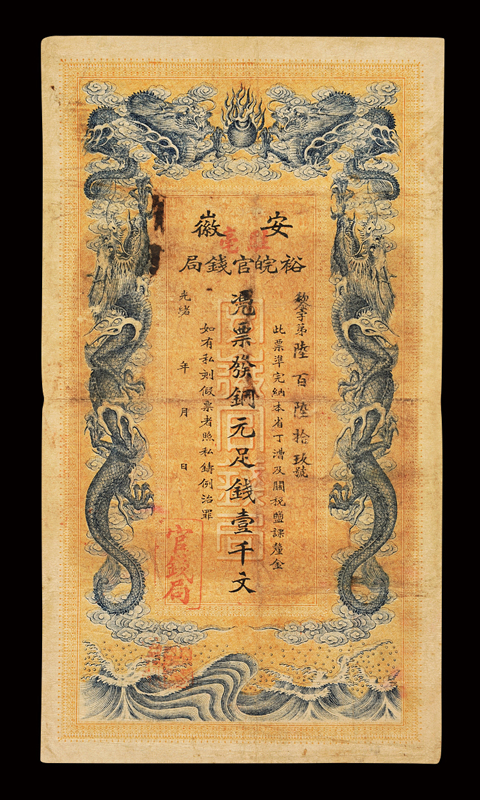 安徽
裕皖官錢局
駐亳
歙字第陸百陸拾玖號
此票準完納本省丁漕及關稅鹽課釐金
憑票發銅元足錢壹千文
如有私刻假票者照私鑄例治罪
光緒 年 月 日
官錢局